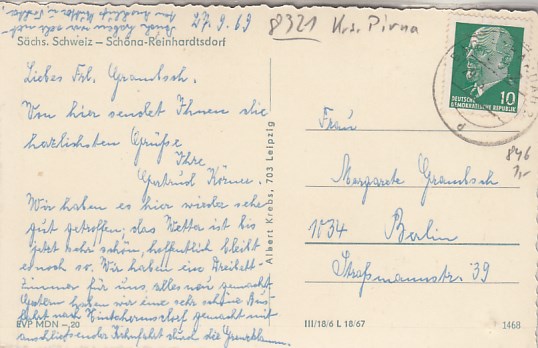 27.9.69
8321 Krs. Pirna
Sächs. Schweiz — Schöna-Reinhardtsdorf
Liebes Frl. Gramtsch.
Von hier sendet Ihnen die
herzlichsten Grüße
Ihre
Gertrud Körner.
Wir haben es hier wieder sehr
gut getroffen; das Wetter ist bis
jetzt sehr schön, hoffentlich bleibt
es noch so. Wir haben eine Dreibett-
zimmer für uns, alles neu gemacht.
Gestern haben wir eine sehr schöne Aus-
fahrt nach gemacht mit
anschließender Kahnfahrt durch die
EVP MDN —.20
Albert Krebs, 703 Leipzig
DEUTSCHE
DEMOKRATISCHE REPUBLIK
10
846
1,-
Frau
Margarete Gramtsch
1034 Berlin
Straßmannstr. 39
III/18/6 L 18/67
1468